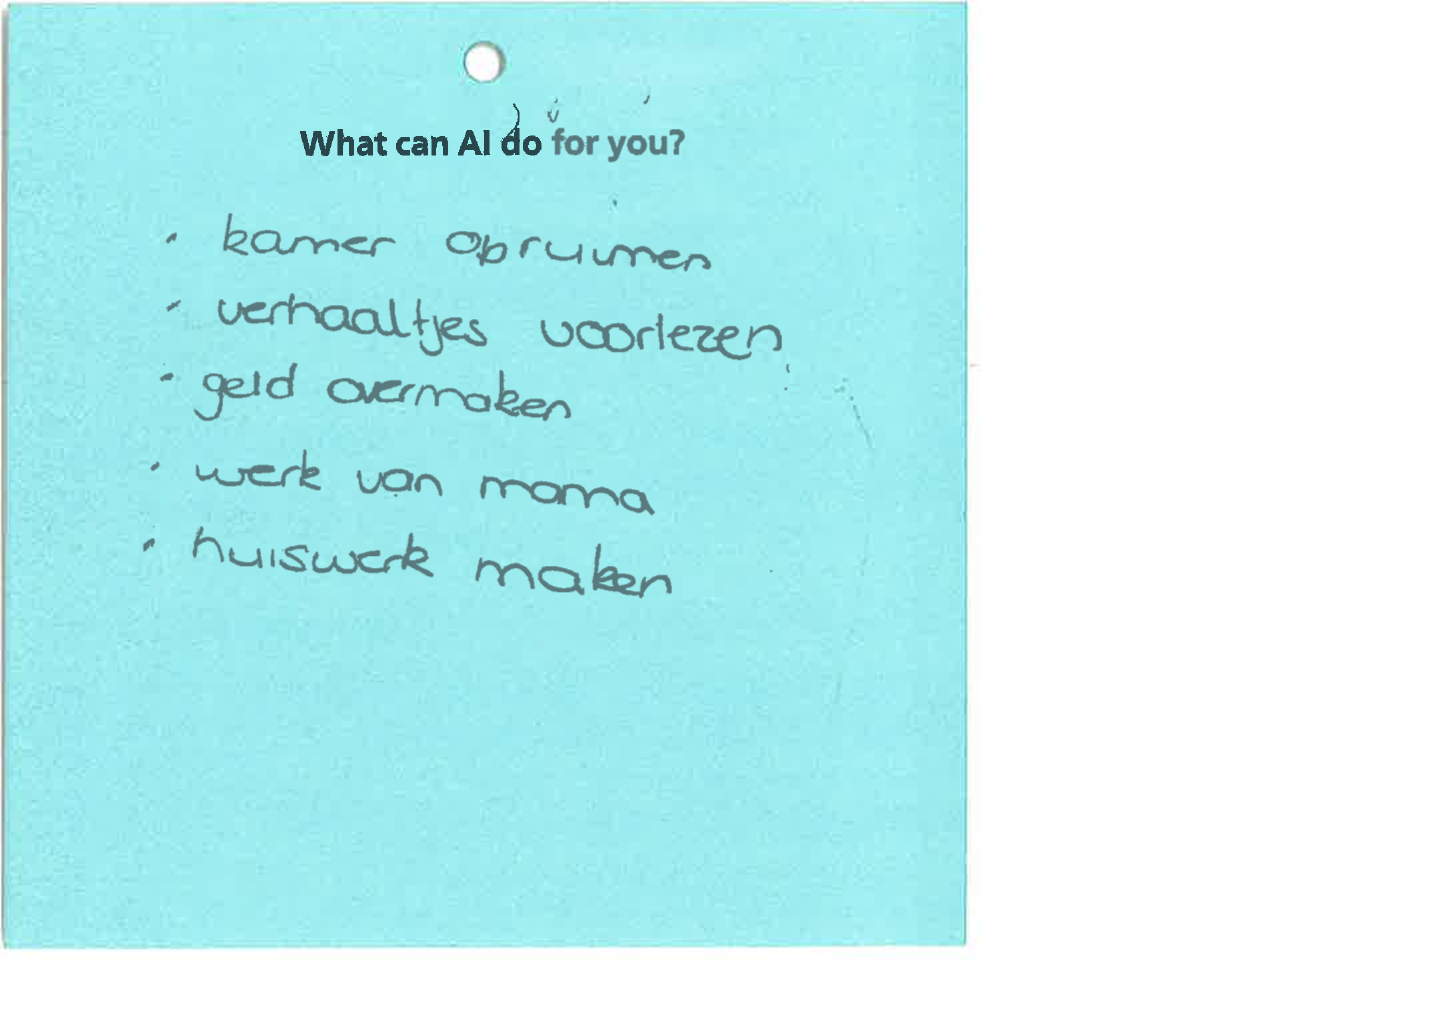 What can AI do for you?
· kamer opruimen
· verhaaltjes voorlezen
· geld overmaken
· werk van mama
· huiswerk maken